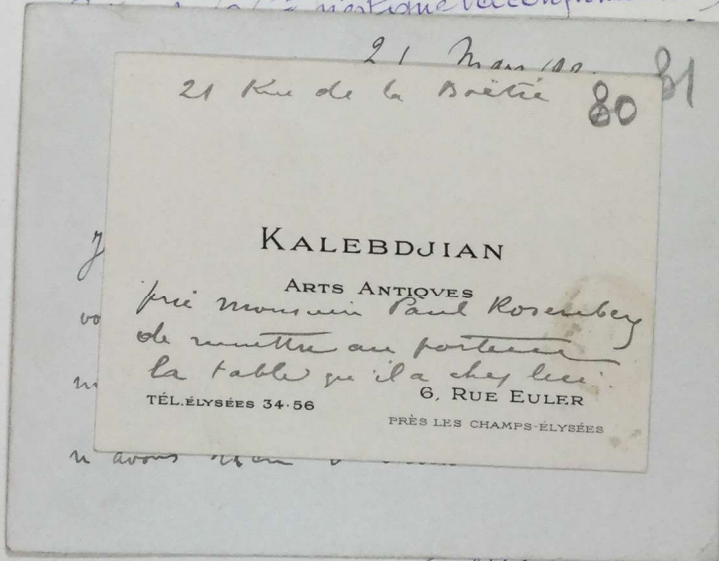 21 Mars
81
21 Rue de la Boëtie
80
KALEBDJIAN
ARTS ANTIQUES
prie monsieur Paul Rosenberg
de remettre au porteur
la table qu'il a chez lui.
TÉL. ÉLYSÉES 34·56
6, RUE EULER
PRÈS LES CHAMPS-ÉLYSÉES
n'avons